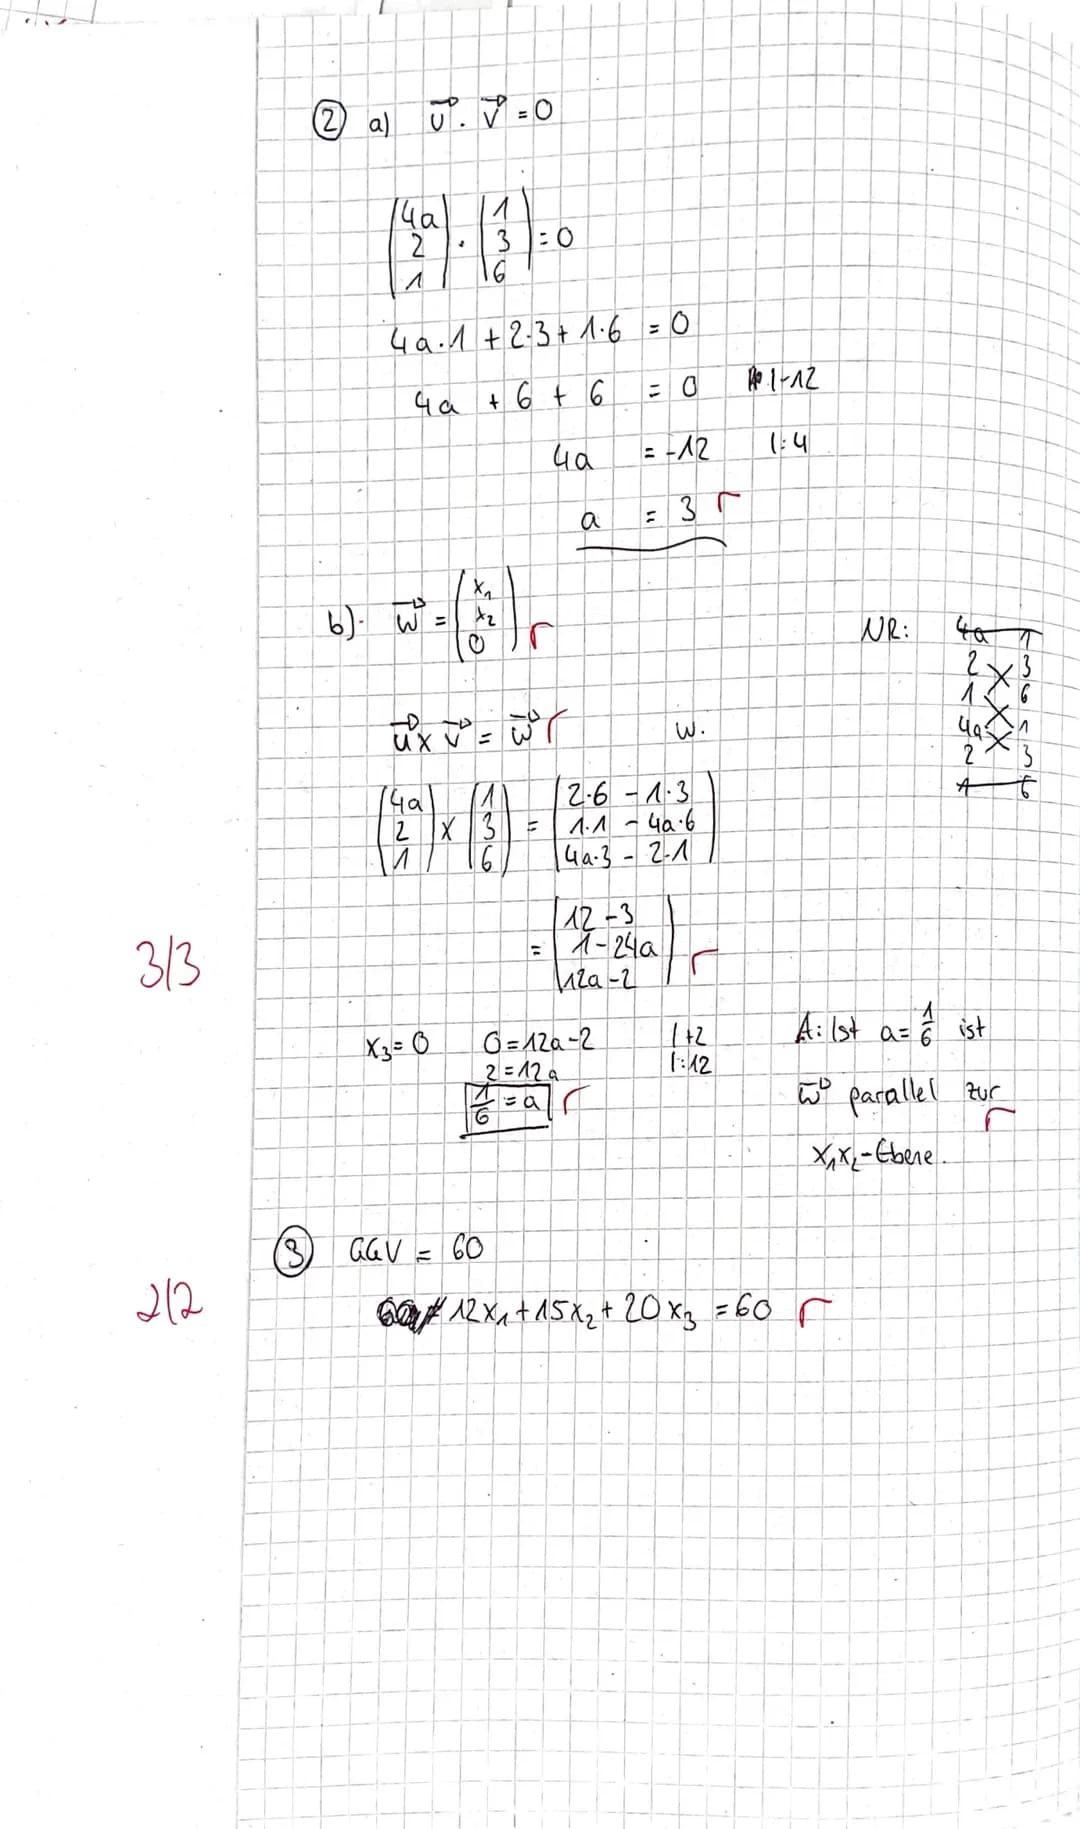 ② a) u⃗ · v⃗ = 0
(4a 2 1) · (1 3 6) = 0
4a·1 + 2·3 + 1·6 = 0
4a + 6 + 6 = 0 |-12
4a = -12 |:4
a = 3 r
b) w⃗ = (x₁ x₂ 0) r
NR:
4a 1
2 3
1 6
4a 1
2 3
1 6
u⃗ x v⃗ = w⃗ r w.
(4a 2 1) x (1 3 6) = (2·6 - 1·3 1·1 - 4a·6 4a·3 - 2·1)
= (12-3 1-24a 12a-2) r
3/3
x₃ = 0 0 = 12a-2 |+2
2 = 12a |:12
1/6 = a r
A: Ist a = 1/6 ist
w⃗ parallel zur r
x₁x₂-Ebene.
③ GGV = 60
2/2
12x₁ + 15x₂ + 20x₃ = 60 r